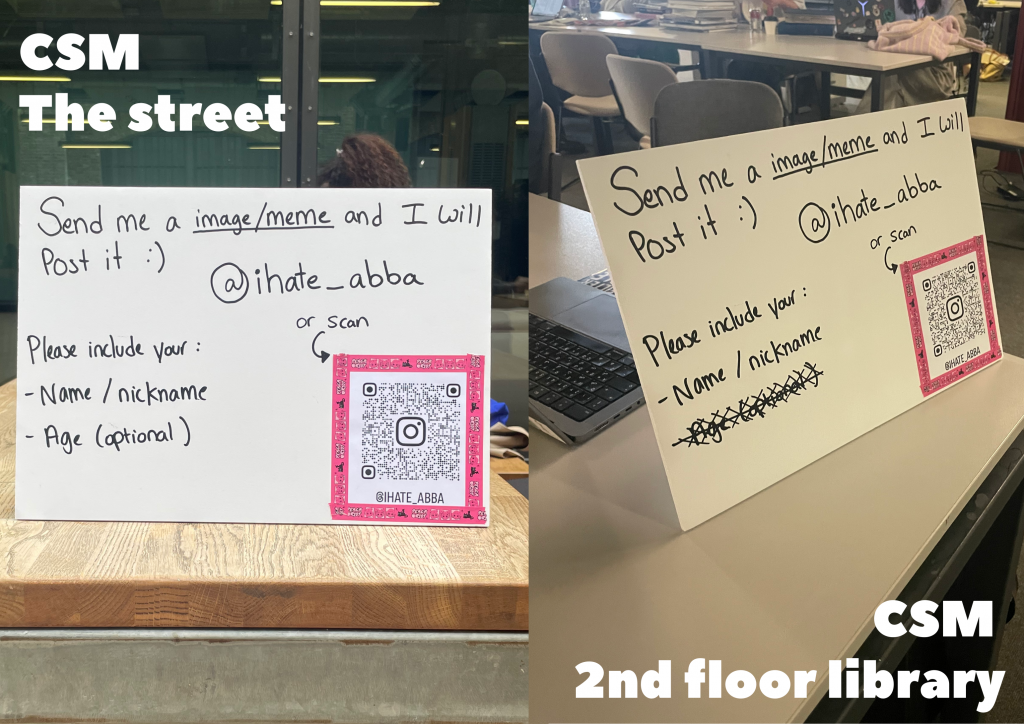 CSM
The street
Send me a image/meme and I Will
Post it :)
@ihate_abba
or scan
Please include your :
- Name / nickname
- Age (optional)
@IHATE_ABBA
Send me a image/meme and I Will
Post it :)
@ihate_abba
or scan
Please include your :
- Name / nickname
- Age (optional)
@IHATE_ABBA
CSM
2nd floor library